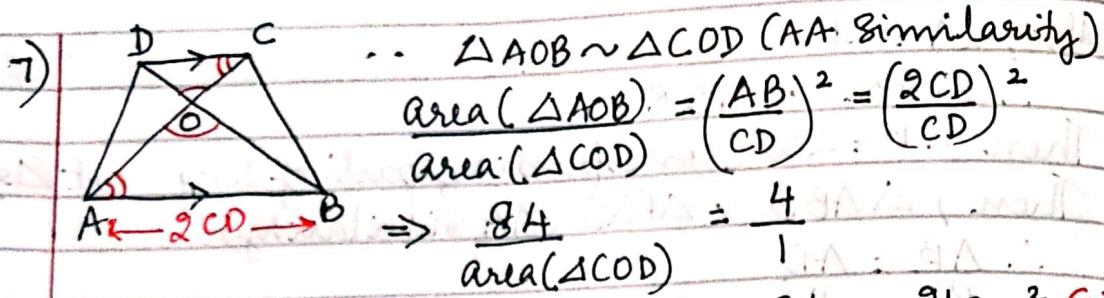 7)
D C
O
A B
2CD
∴ △AOB ~ △COD (AA Similarity)
area(△AOB) / area(△COD) = (AB/CD)² = (2CD/CD)²
⇒ 84 / area(△COD) = 4/1